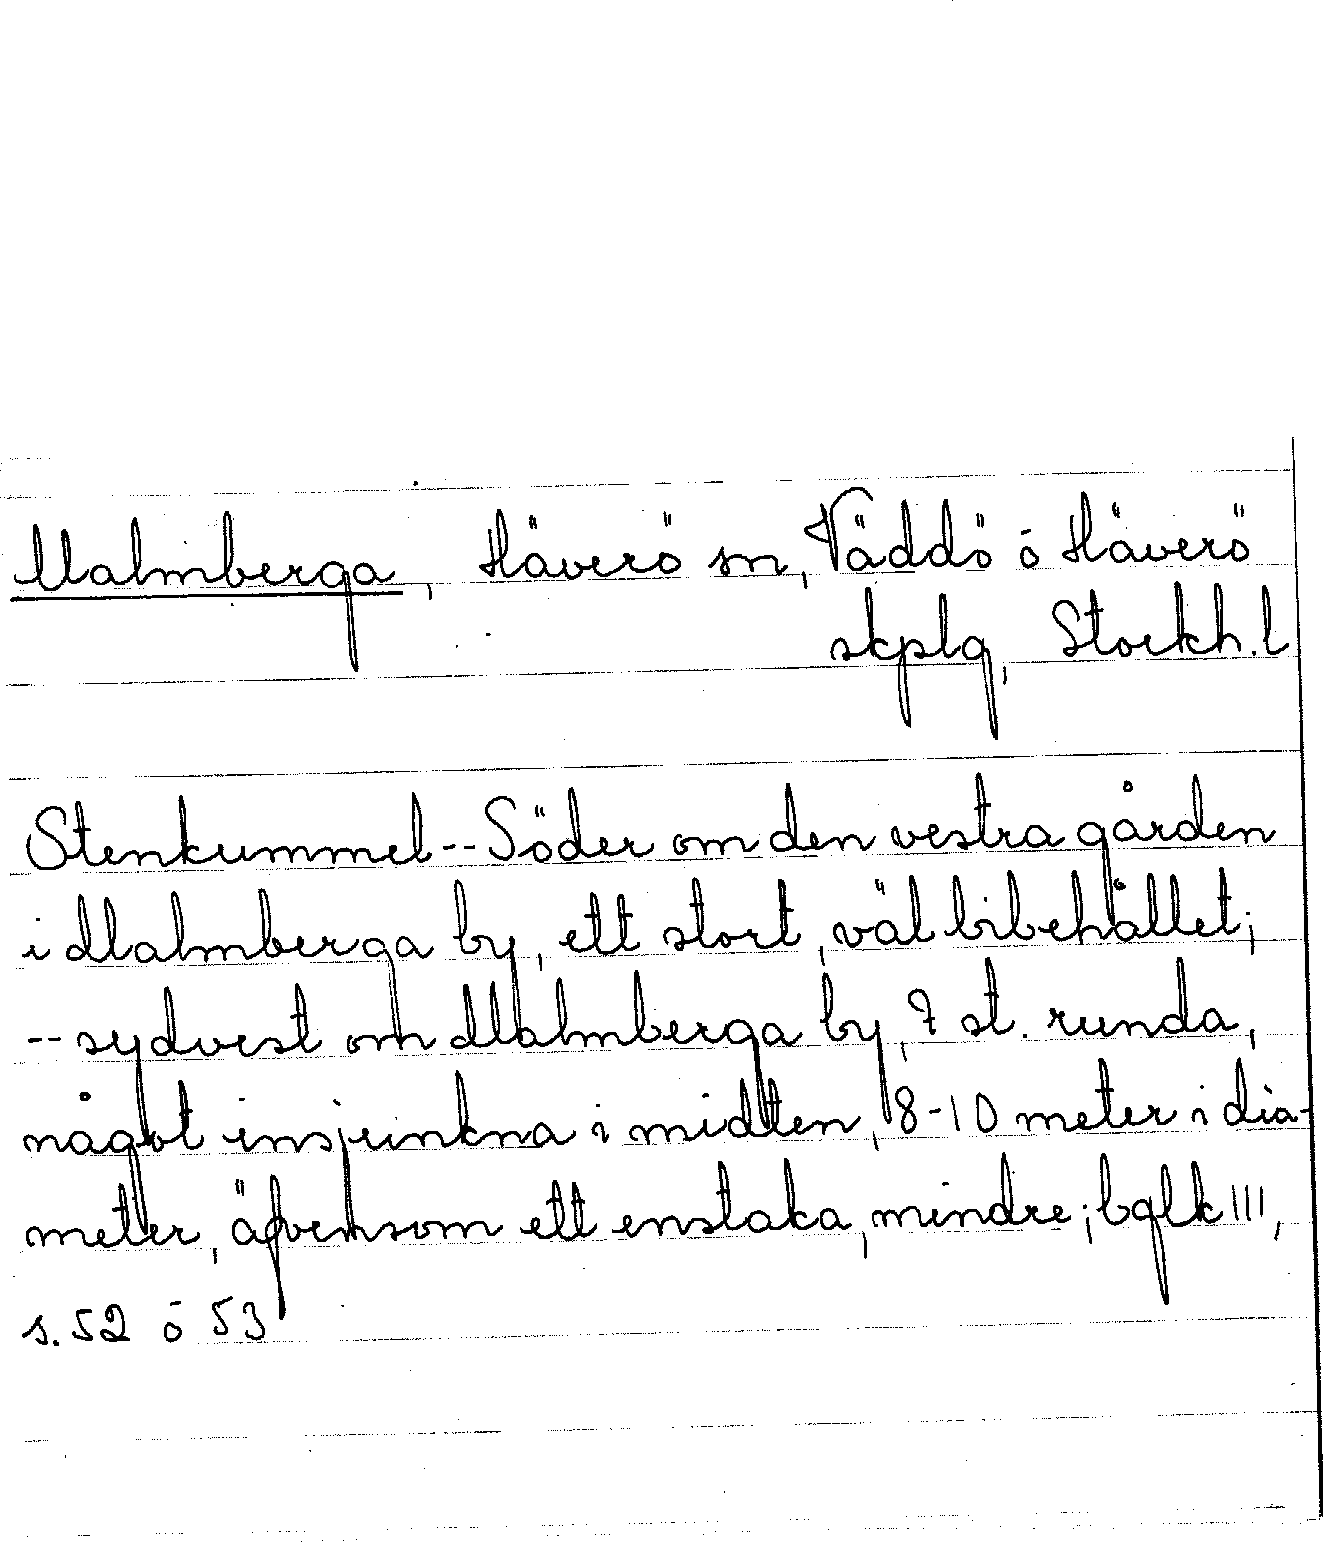 Malmberga, Häverö sn, Väddö ō Häverö
skplg, Stockh.l
Stenkummel -- Söder om den vestra gården
i Malmberga by, ett stort, väl bibehållet;
-- sydvest om Malmberga by, 7 st. runda,
något insjunkna i midten, 8-10 meter i dia-
meter, äfvensom ett enstaka, mindre; bglk III,
s. 52 ō 53